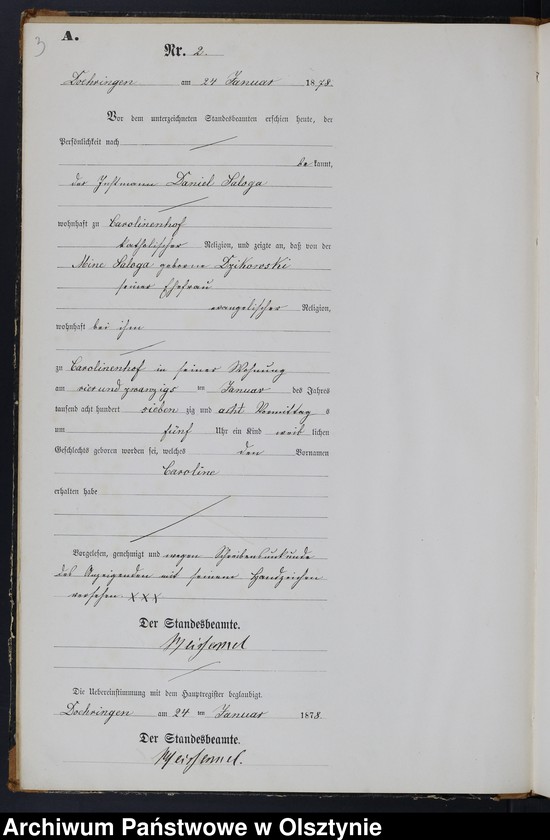 3
A.
Nr. 2.
Doehringen am 24 Januar 1878.
Vor dem unterzeichneten Standesbeamten erschien heute, der
Persönlichkeit nach
bekannt,
der Instmann Daniel Saloga
wohnhaft zu Carolinenhof
katholischer Religion, und zeigte an, daß von der
Mine Saloga geborene Dzikowski
seiner Ehefrau
evangelischer Religion,
wohnhaft bei ihm
zu Carolinenhof in seiner Wohnung
am vier und zwanzigs ten Januar des Jahres
tausend acht hundert sieben zig und acht Vormittag s
um fünf Uhr ein Kind weib lichen
Geschlechts geboren worden sei, welches den Vornamen
Caroline
erhalten habe
Vorgelesen, genehmigt und wegen Schreibensunkunde
des Anzeigenden mit seinem Handzeichen
versehen XXX
Der Standesbeamte.
Die Uebereinstimmung mit dem Hauptregister beglaubigt.
Doehringen am 24 ten Januar 1878.
Der Standesbeamte.
Archiwum Państwowe w Olsztynie